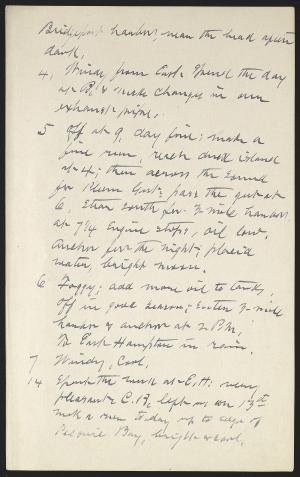 Bridgeport harbor, near the head after
dark.
4, Windy from East. Spend the day
at B. & make changes in our
exhaust pipe.
5 Off at 9, day fine: make a
fine run, reach duck island
at 4; then across the sound
for Plum Gut; pass the gut at
6, then south for 3 mile harbor,
at 7 1/4 engine stops, oil low.
Anchor for the night; placid
water, bright moon.
6 Foggy; add more oil to tanks,
off in good season; Enter 3-mile
harbor & anchor at 2 P.M.
To East Hampton in rain.
7 Windy, Cool.
14 Spent the week at E. H. very
pleasant; C. R. left us on 13th
make a run to day up to edge of
Peconic Bay, bright & cool.